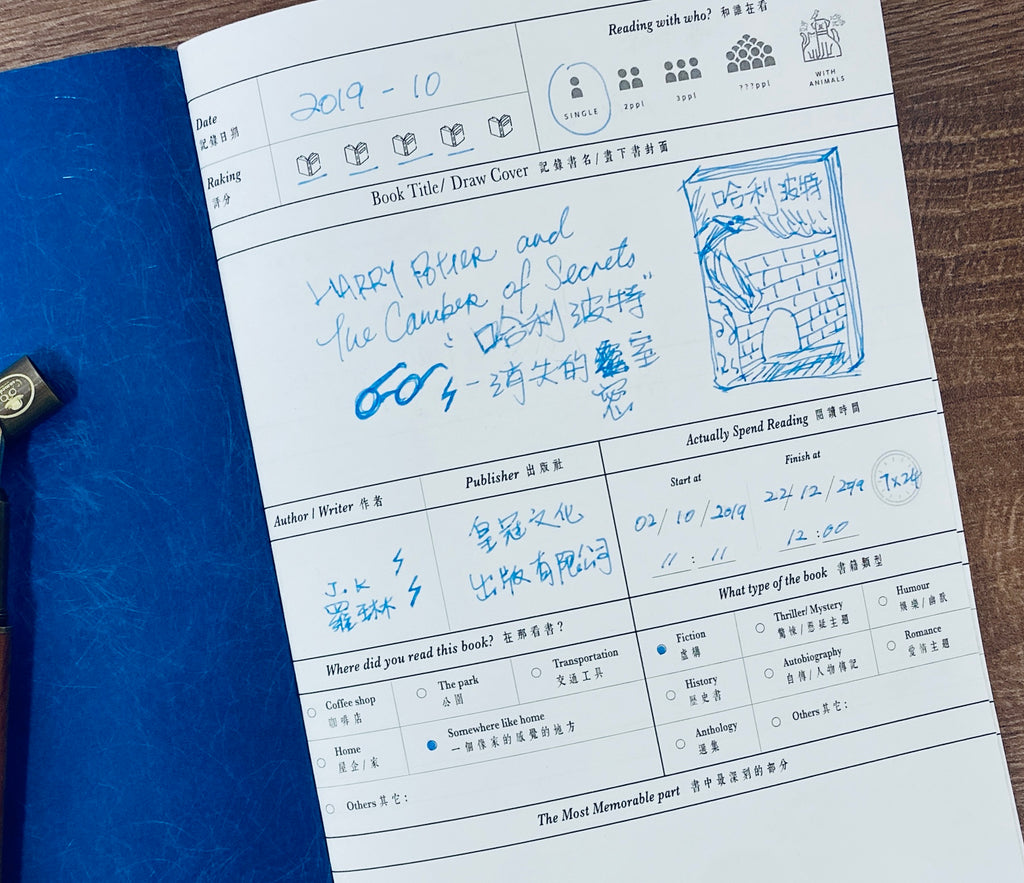 Reading with who? 和誰在看
Date
記錄日期
2019 - 10
SINGLE
2ppl
3ppl
???ppl
WITH
ANIMALS
Raking
評分
Book Title/ Draw Cover 記錄書名/畫下書封面
HARRY Potter and
the Camber of Secrets
"哈利波特"
-消失的密室
密
哈利波特
Author / Writer 作者
Publisher 出版社
Actually Spend Reading 閱讀時間
J.K
羅琳
皇冠文化
出版有限公司
Start at
Finish at
02/10/2019
22/12/2019
7x24
11:11
12:00
Where did you read this book? 在那看書?
What type of the book 書籍類型
Coffee shop
咖啡店
The park
公園
Transportation
交通工具
Home
屋企/家
Somewhere like home
一個像家的感覺的地方
Others其它:
Fiction
虛構
Thriller/ Mystery
驚悚/懸疑主題
Humour
娛樂/幽默
History
歷史書
Autobiography
自傳/人物傳記
Romance
愛情主題
Anthology
選集
Others其它:
The Most Memorable part 書中最深刻的部分